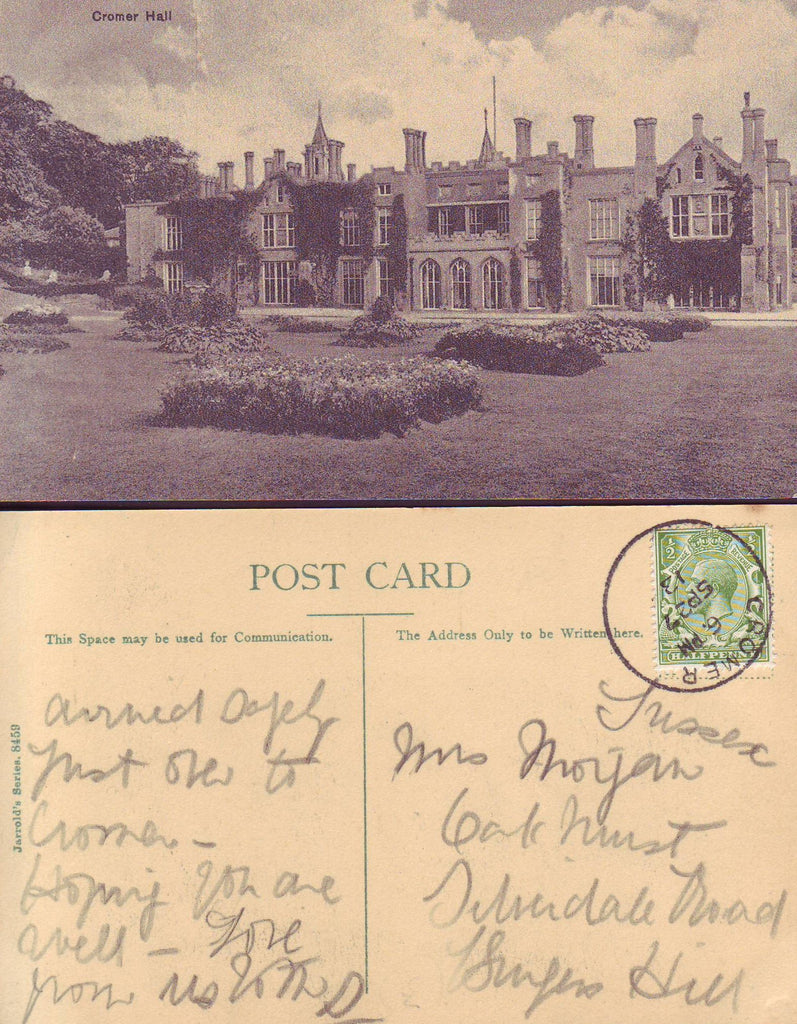 Cromer Hall
POST CARD
This Space may be used for Communication.
The Address Only to be Written here.
½
POSTAGE REVENUE
HALFPENNY
CROMER
6 PM
SP 23
13
Jarrold's Series. 8459
arrived safely
Just over to
Cromer –
Hoping you are
well – Love
from us both D
Sussex
Mrs Morgan
Oakhurst
Silverdale Road
Burgess Hill